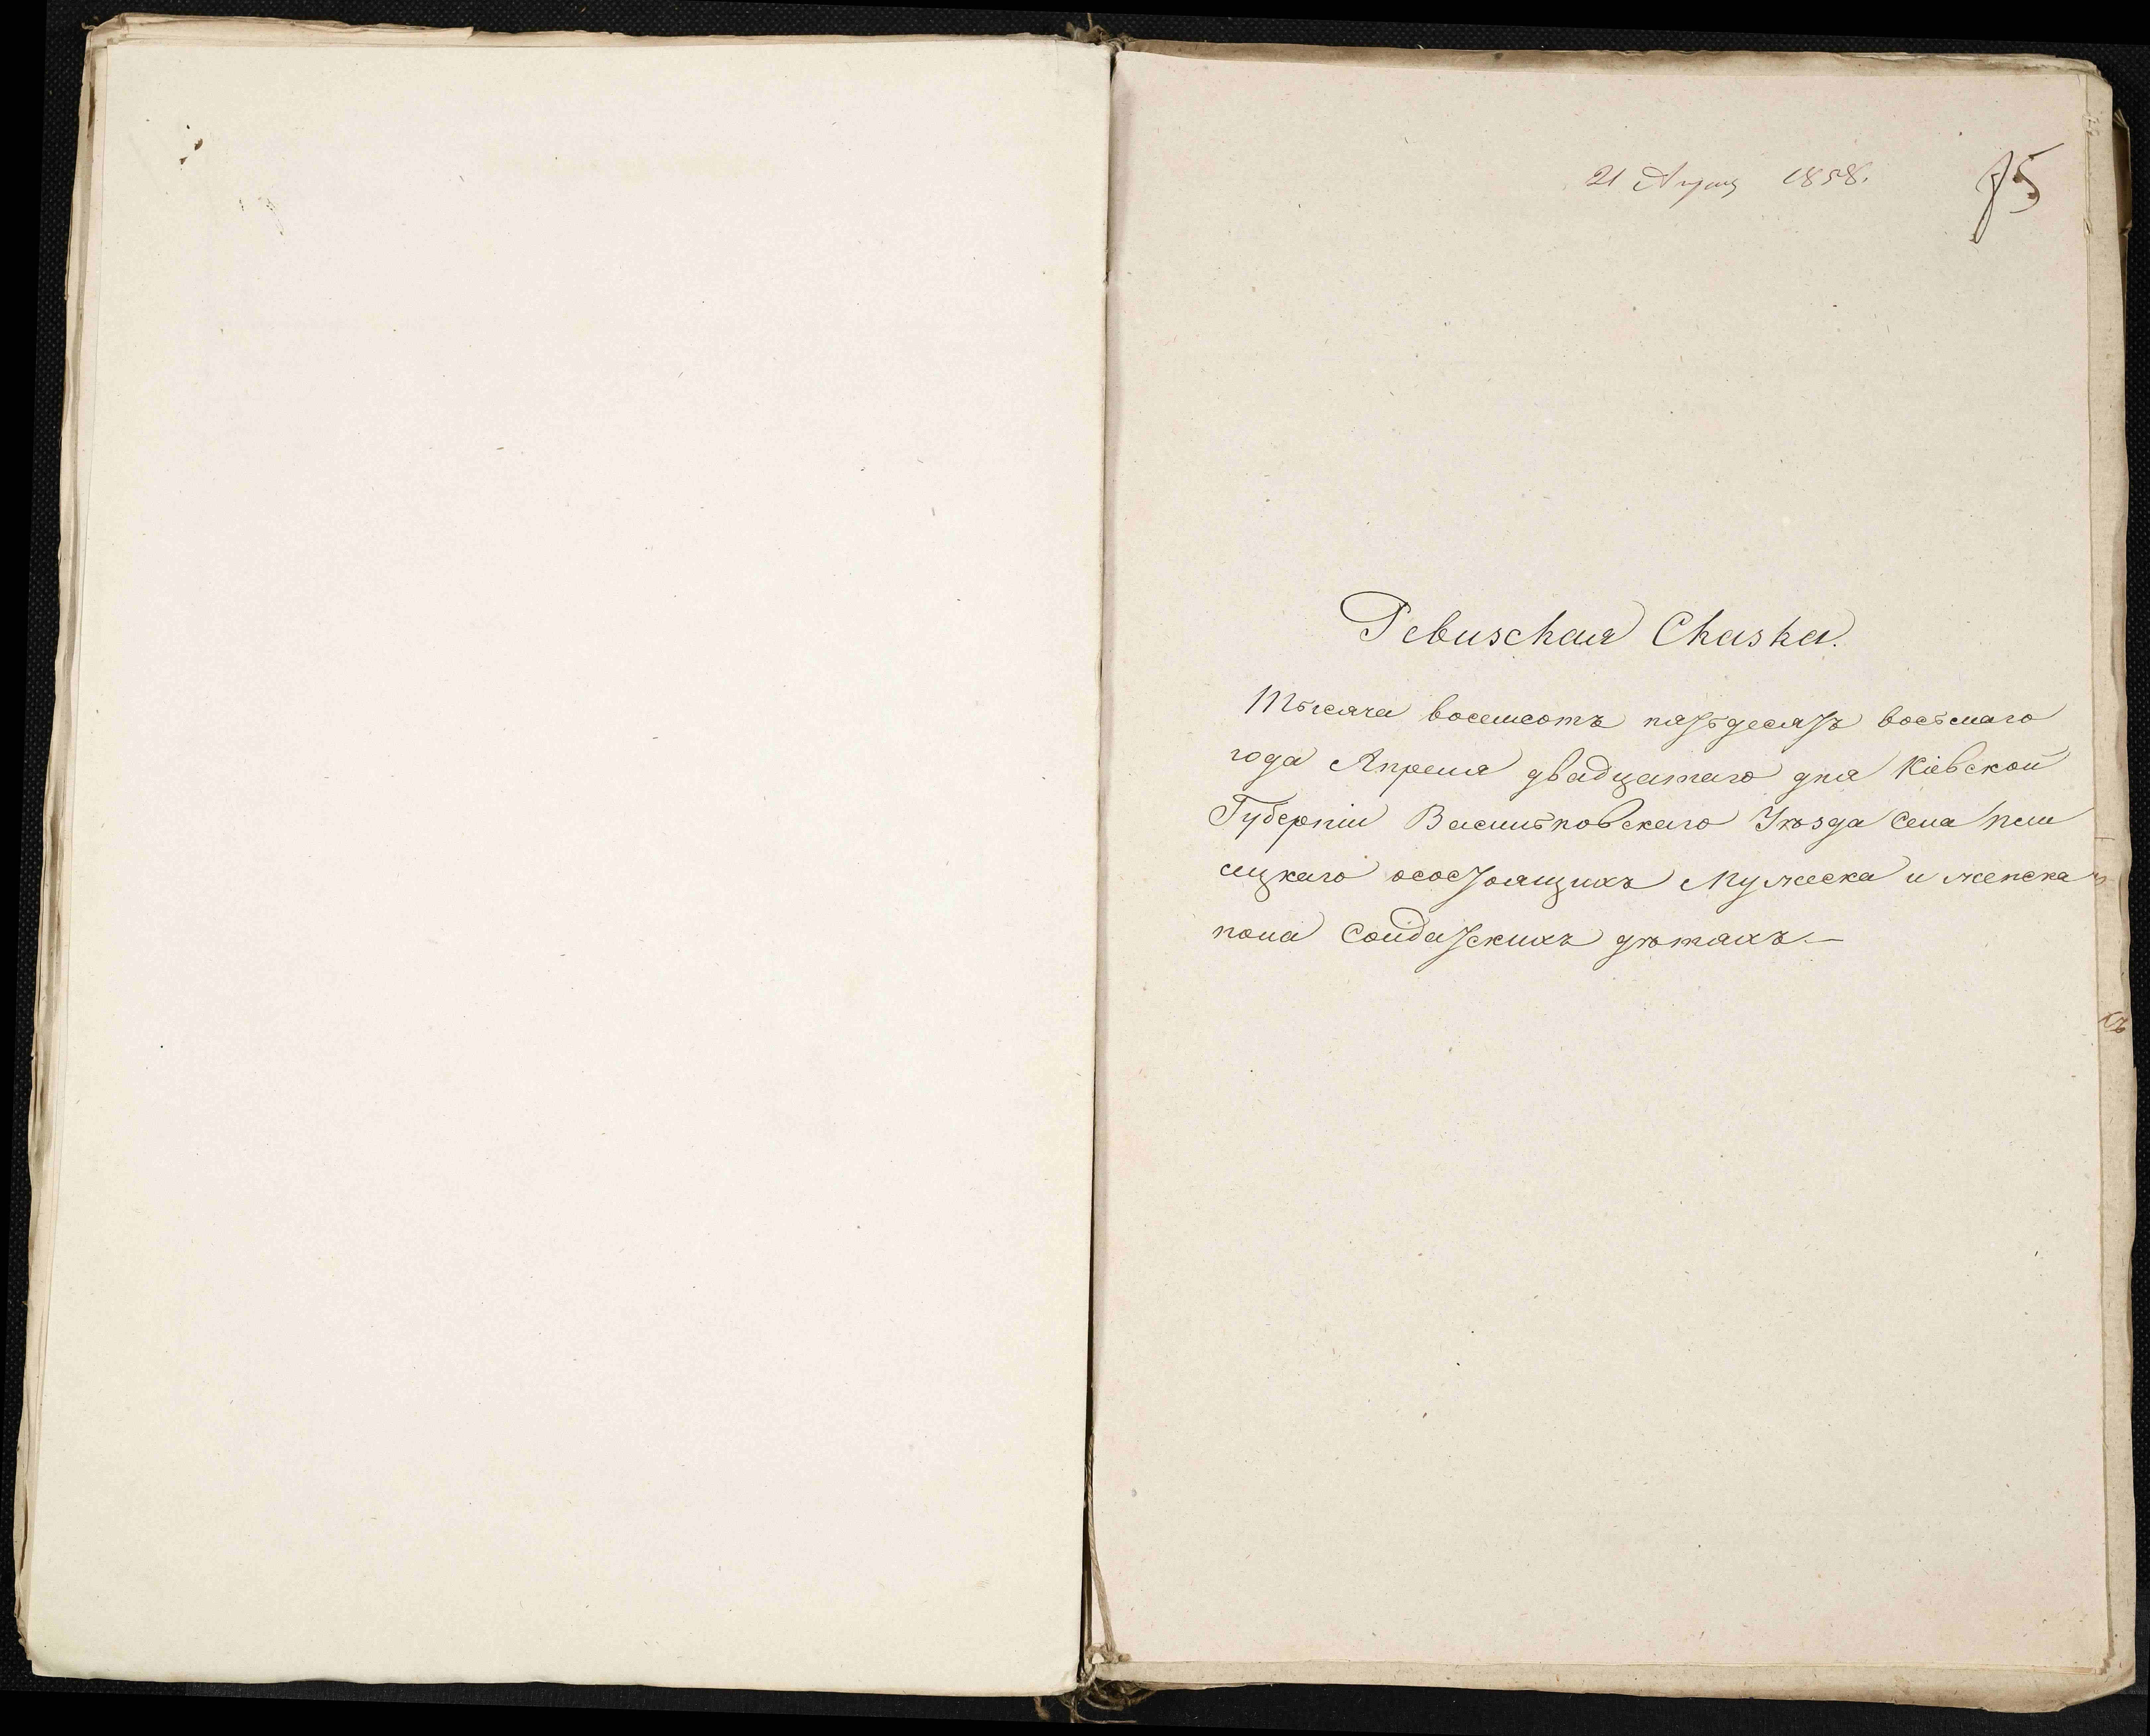 21 Апрѣля 1858.
75
Ревизская Сказка.
Тысяча восемсотъ пятьдесятъ восьмаго
года Апреля двадцатаго дня Кіевской
Губерніи Васильковскаго Уѣзда Села
сицкаго осостоящихъ Мужеска и женска
пола Солдатскихъ дѣтяхъ.—